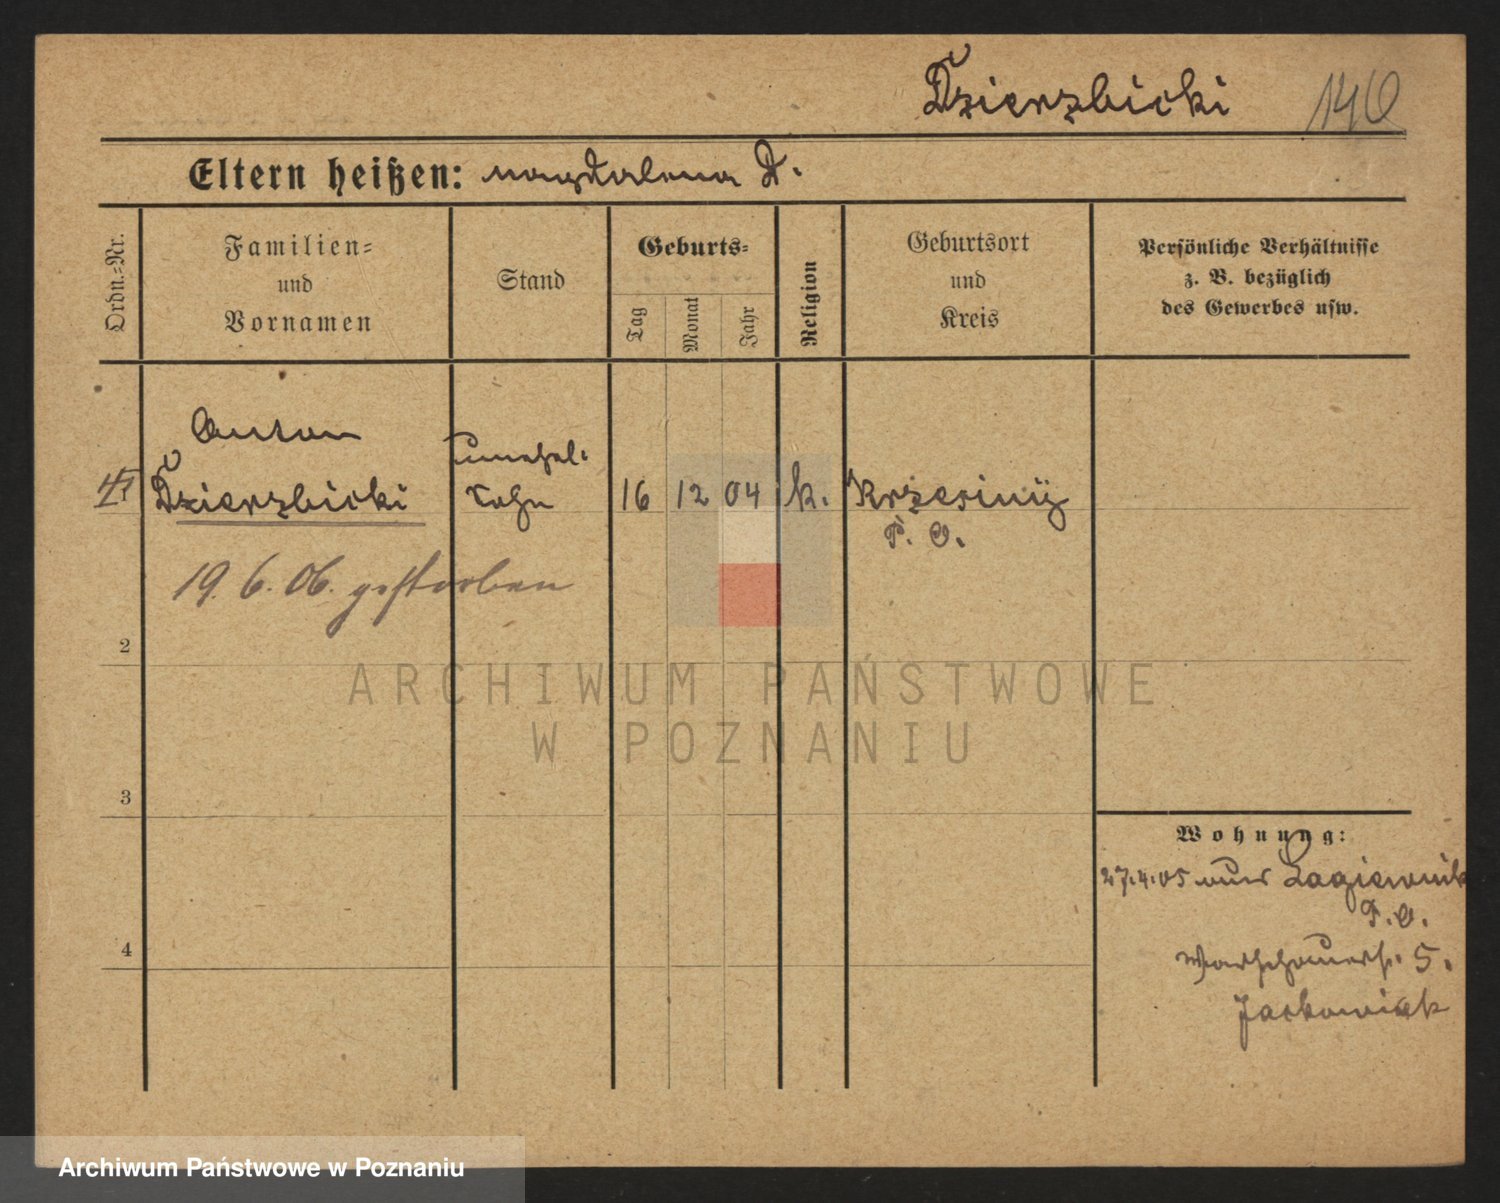 Dzierzbicki 140
Eltern heißen: Magdalena D.
Ordn.=Nr.
Familien=
und
Vornamen
Stand
Geburts=
Tag
Monat
Jahr
Religion
Geburtsort
und
Kreis
Persönliche Verhältnisse
z. B. bezüglich
des Gewerbes usw.
Anton
Dzierzbicki
unehel.
Sohn
16 12 04 k. Krzesiny
P. O.
19. 6. 06. gestorben
2
3
4
Wohnung:
27.4.05 aus Lagiewnik
P. O.
Warschauerst. 5.
Jackowiak
ARCHIWUM PAŃSTWOWE
W POZNANIU
Archiwum Państwowe w Poznaniu